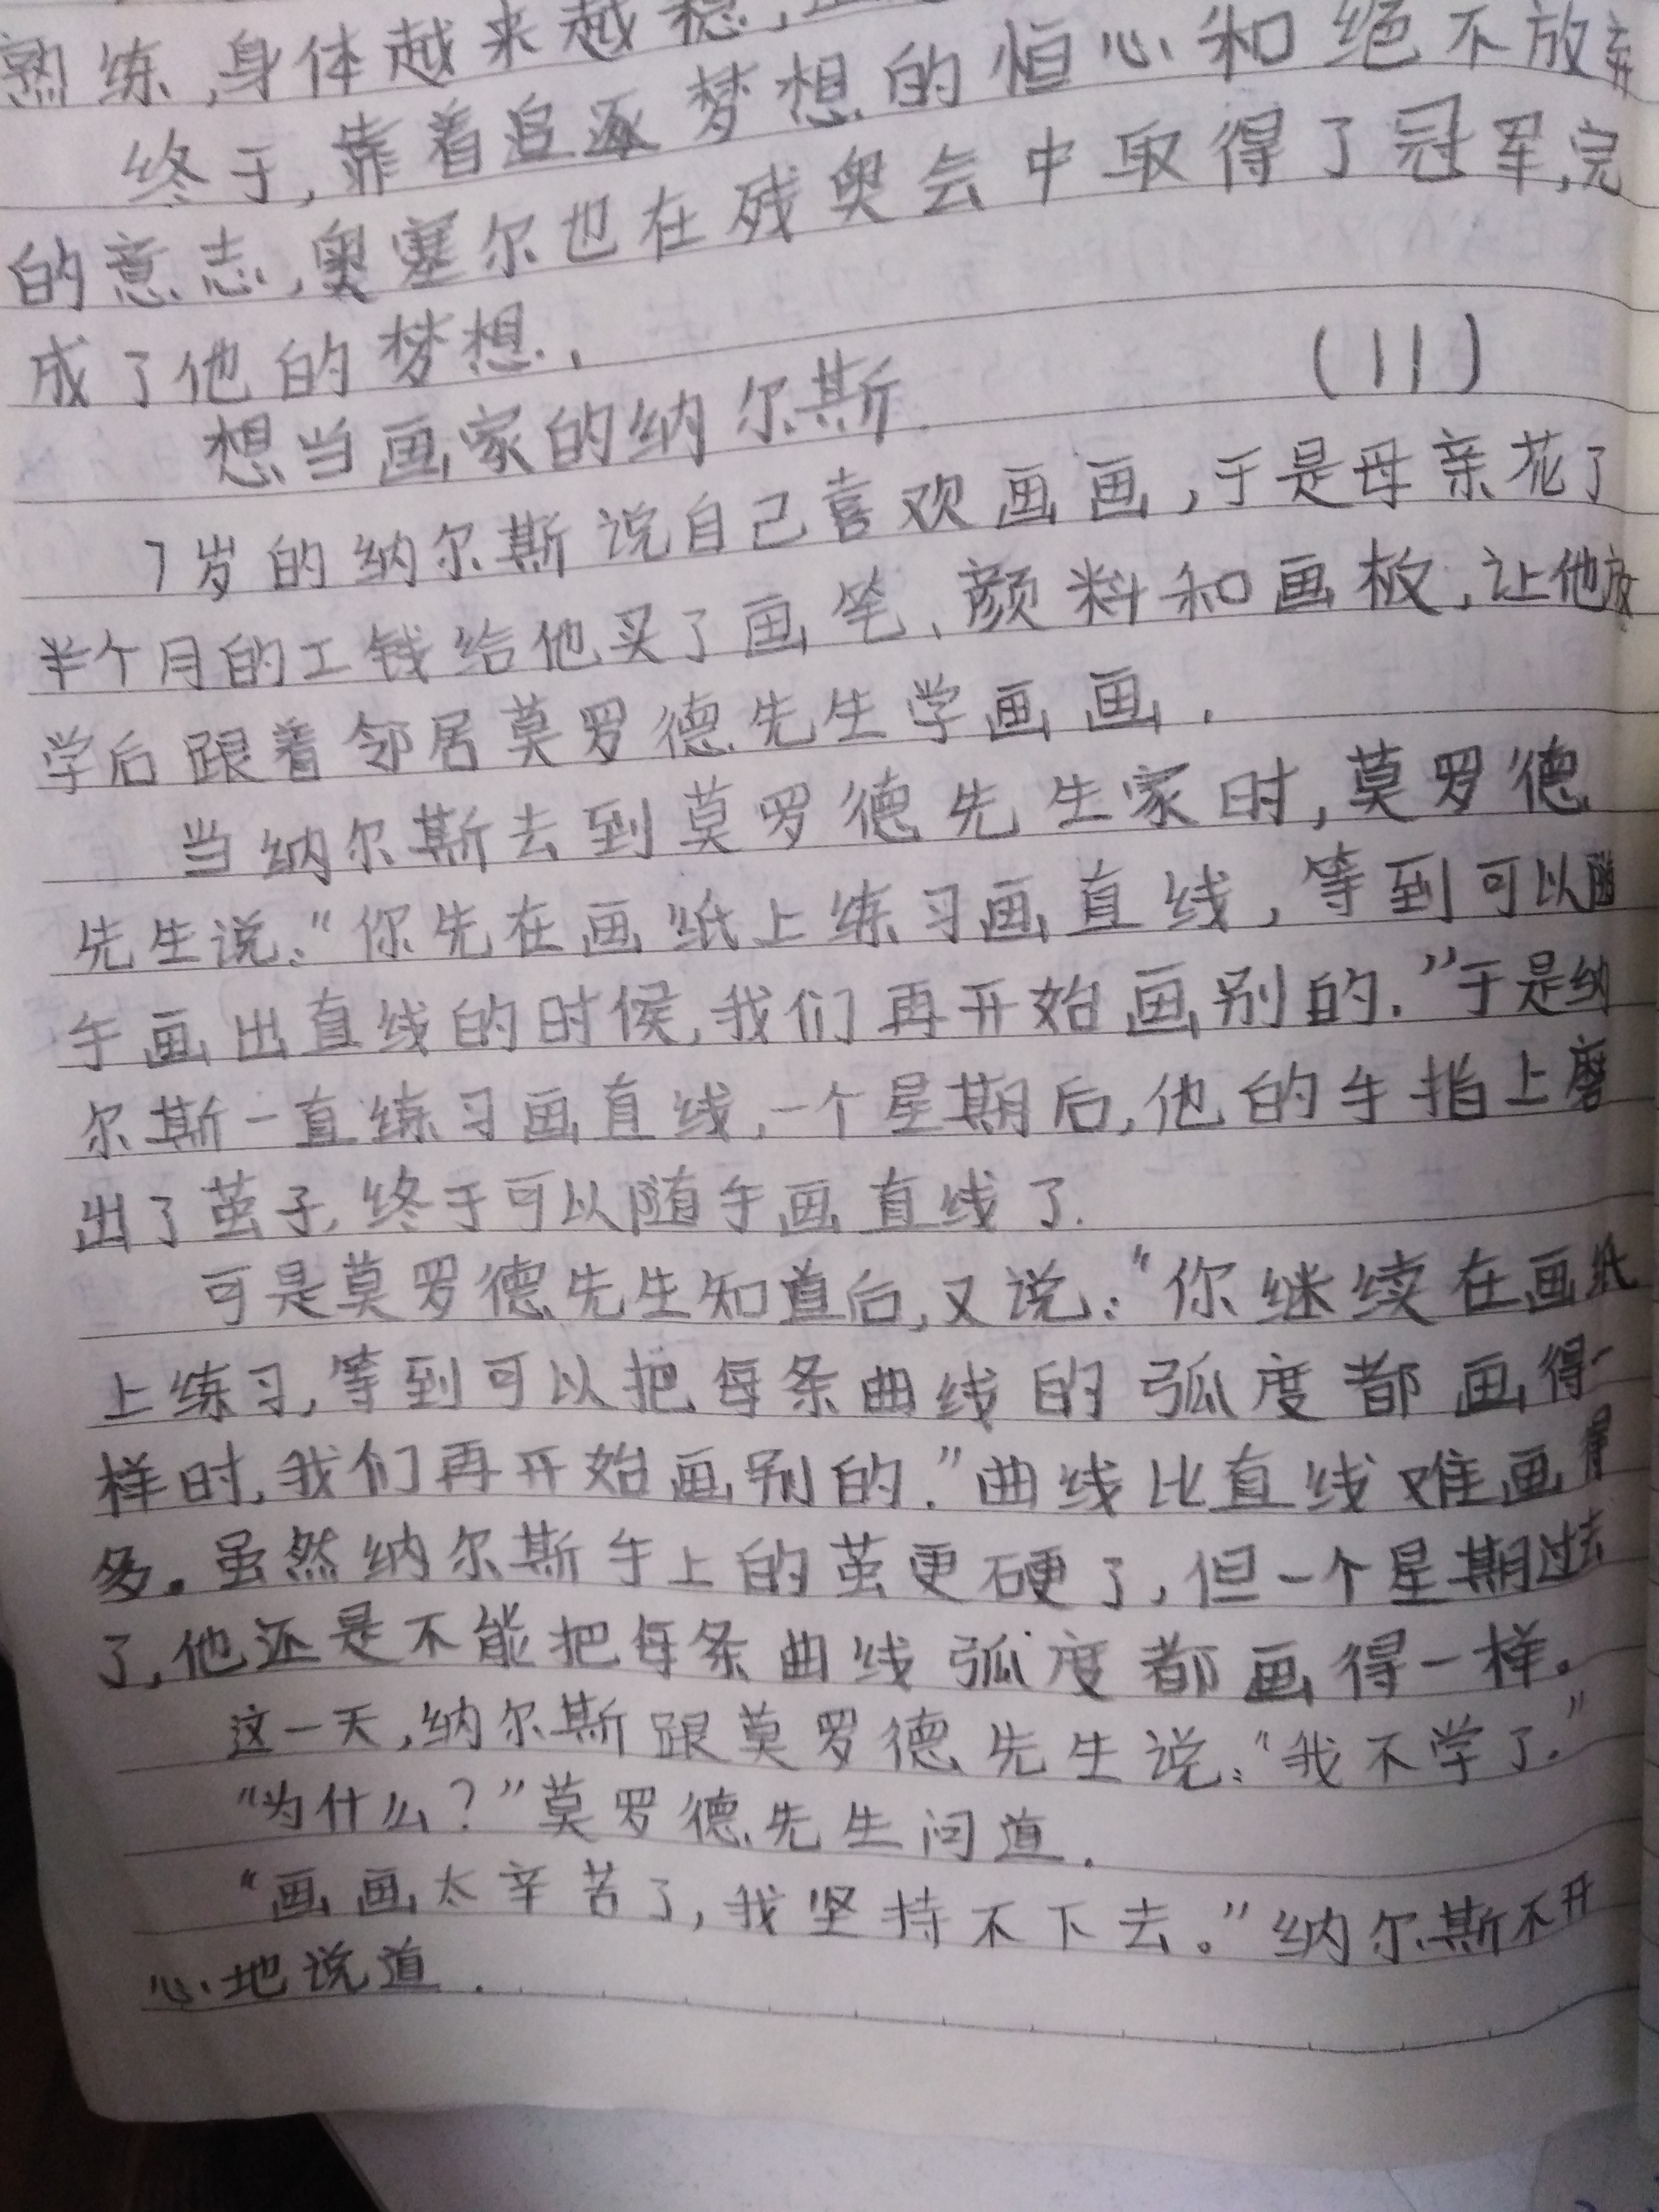 熟练,身体越来越稳,
终于,靠着追逐梦想的恒心和绝不放弃
的意志,奥塞尔也在残奥会中取得了冠军,完
成了他的梦想.
(11)
想当画家的纳尔斯
7岁的纳尔斯说自己喜欢画画,于是母亲花了
半个月的工钱给他买了画笔、颜料和画板,让他放
学后跟着邻居莫罗德先生学画画.
当纳尔斯去到莫罗德先生家时,莫罗德
先生说:"你先在画纸上练习画直线,等到可以随
手画出直线的时候,我们再开始画别的."于是纳
尔斯一直练习画直线,一个星期后,他的手指上磨
出了茧子,终于可以随手画直线了.
可是莫罗德先生知道后,又说:"你继续在画纸
上练习,等到可以把每条曲线的弧度都画得一
样时,我们再开始画别的."曲线比直线难画得
多。虽然纳尔斯手上的茧更硬了,但一个星期过去
了,他还是不能把每条曲线弧度都画得一样。
这一天,纳尔斯跟莫罗德先生说:"我不学了."
"为什么?"莫罗德先生问道.
"画画太辛苦了,我坚持不下去。"纳尔斯不开
心地说道.